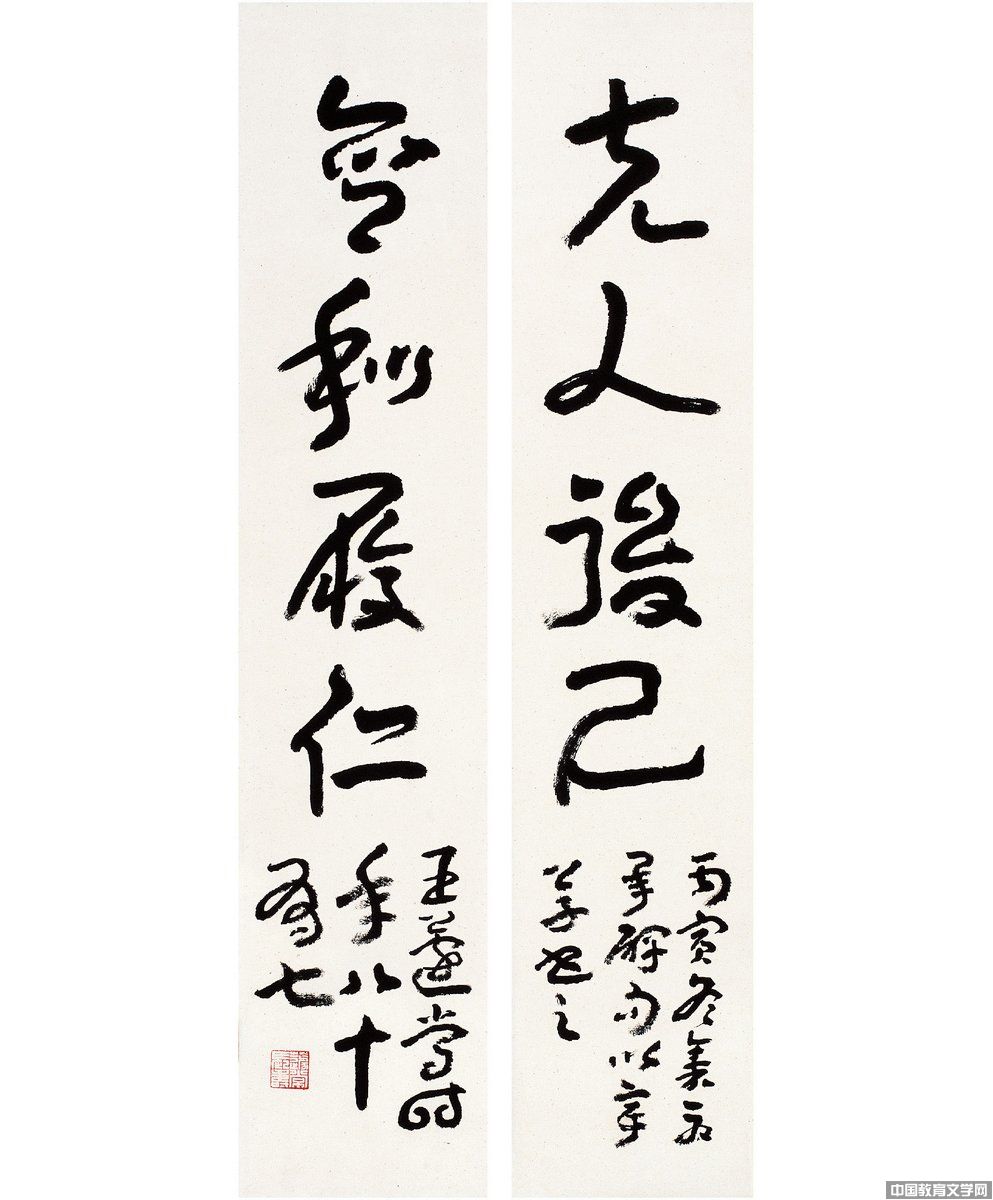 先人後己
丙寅冬集
碑句以章
草書之
舍利履仁
王蘧常時
年八十
有七
中国教育文学网